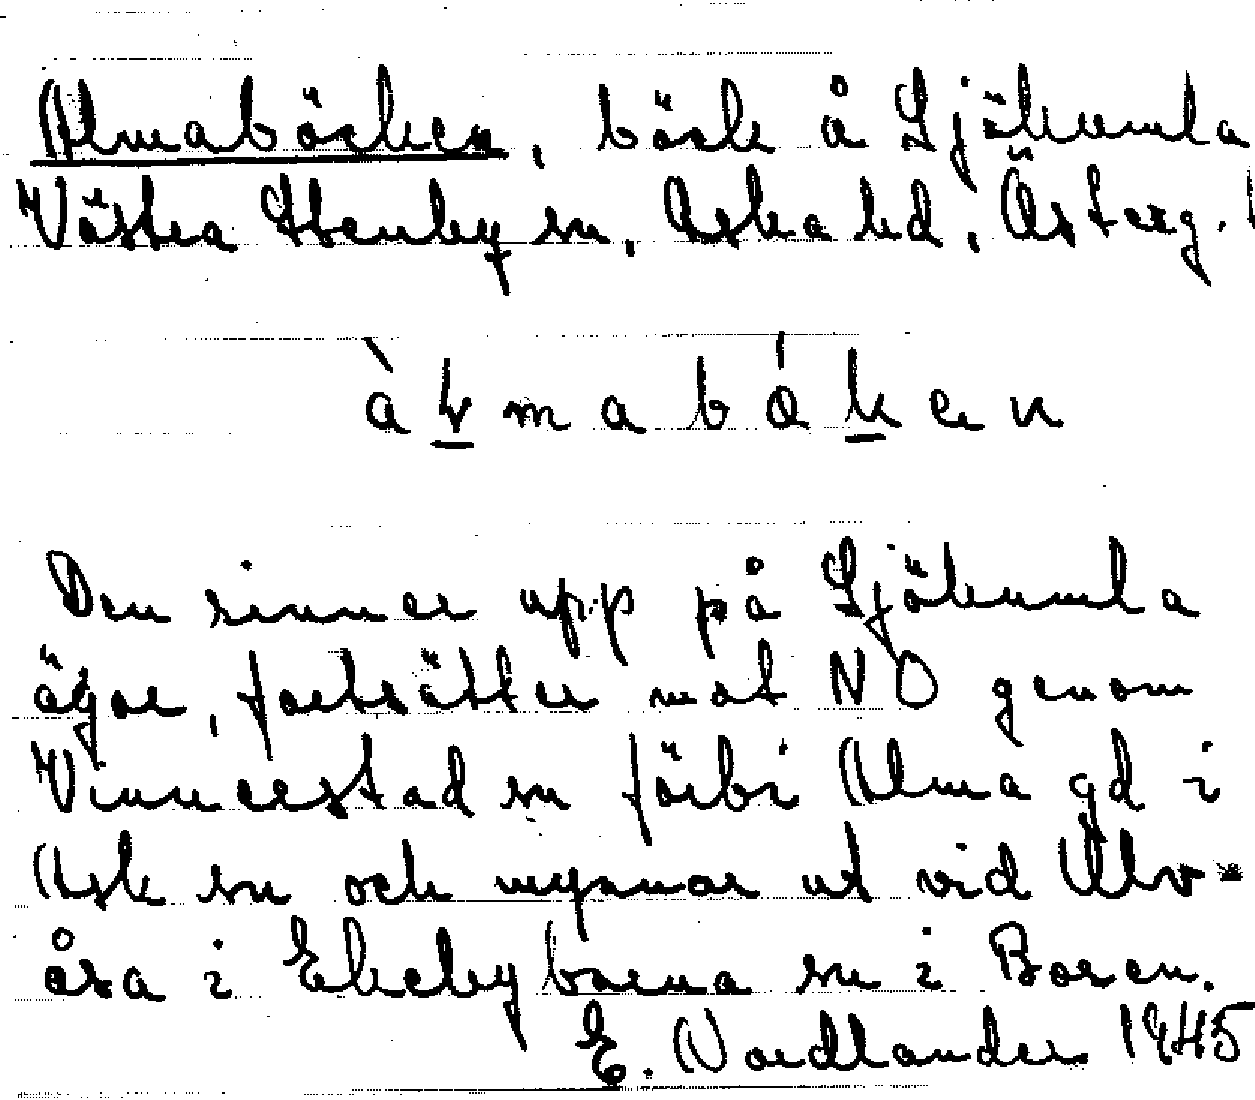 Almabäcken, bäck å Sjökumla
Västra Stenby sn, Aska hd, Österg. l
Den rinner upp på Sjökumla
ägor, fortsätter mot NO genom
Vinnerstad sn förbi Alma gd i
Ask sn och mynnar ut vid Ulv-
åsa i Ekebyborna sn i Boren.
E. Nordlander 1945